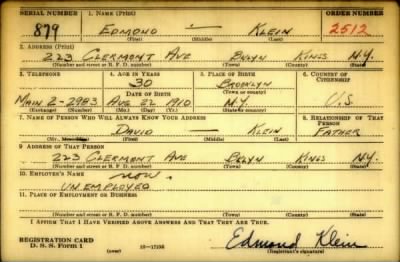 SERIAL NUMBER 1. NAME (Print) ORDER NUMBER
879 EDMOND — KLEIN 2512
(First) (Middle) (Last)
2. ADDRESS (Print)
223 CLERMONT AVE BKLYN KINGS N.Y.
(Number and street or R. F. D. number) (Town) (County) (State)
3. TELEPHONE 4. AGE IN YEARS 5. PLACE OF BIRTH 6. COUNTRY OF CITIZENSHIP
30 BROOKLYN
DATE OF BIRTH (Town or county)
MAIN 2-2983 AUG 22 1910 N.Y. U.S.
(Exchange) (Number) (Mo.) (Day) (Yr.) (State or country)
7. NAME OF PERSON WHO WILL ALWAYS KNOW YOUR ADDRESS 8. RELATIONSHIP OF THAT PERSON
DAVID — KLEIN FATHER
(First) (Middle) (Last)
9. ADDRESS OF THAT PERSON
223 CLERMONT AVE BKLYN KINGS N.Y.
(Number and street or R. F. D. number) (Town) (County) (State)
10. EMPLOYER'S NAME
NOW
UNEMPLOYED
11. PLACE OF EMPLOYMENT OR BUSINESS
(Number and street or R. F. D. number) (Town) (County) (State)
I AFFIRM THAT I HAVE VERIFIED ABOVE ANSWERS AND THAT THEY ARE TRUE.
REGISTRATION CARD
D. S. S. FORM 1 (over) 16—17105 Edmond Klein
(Registrant's signature)